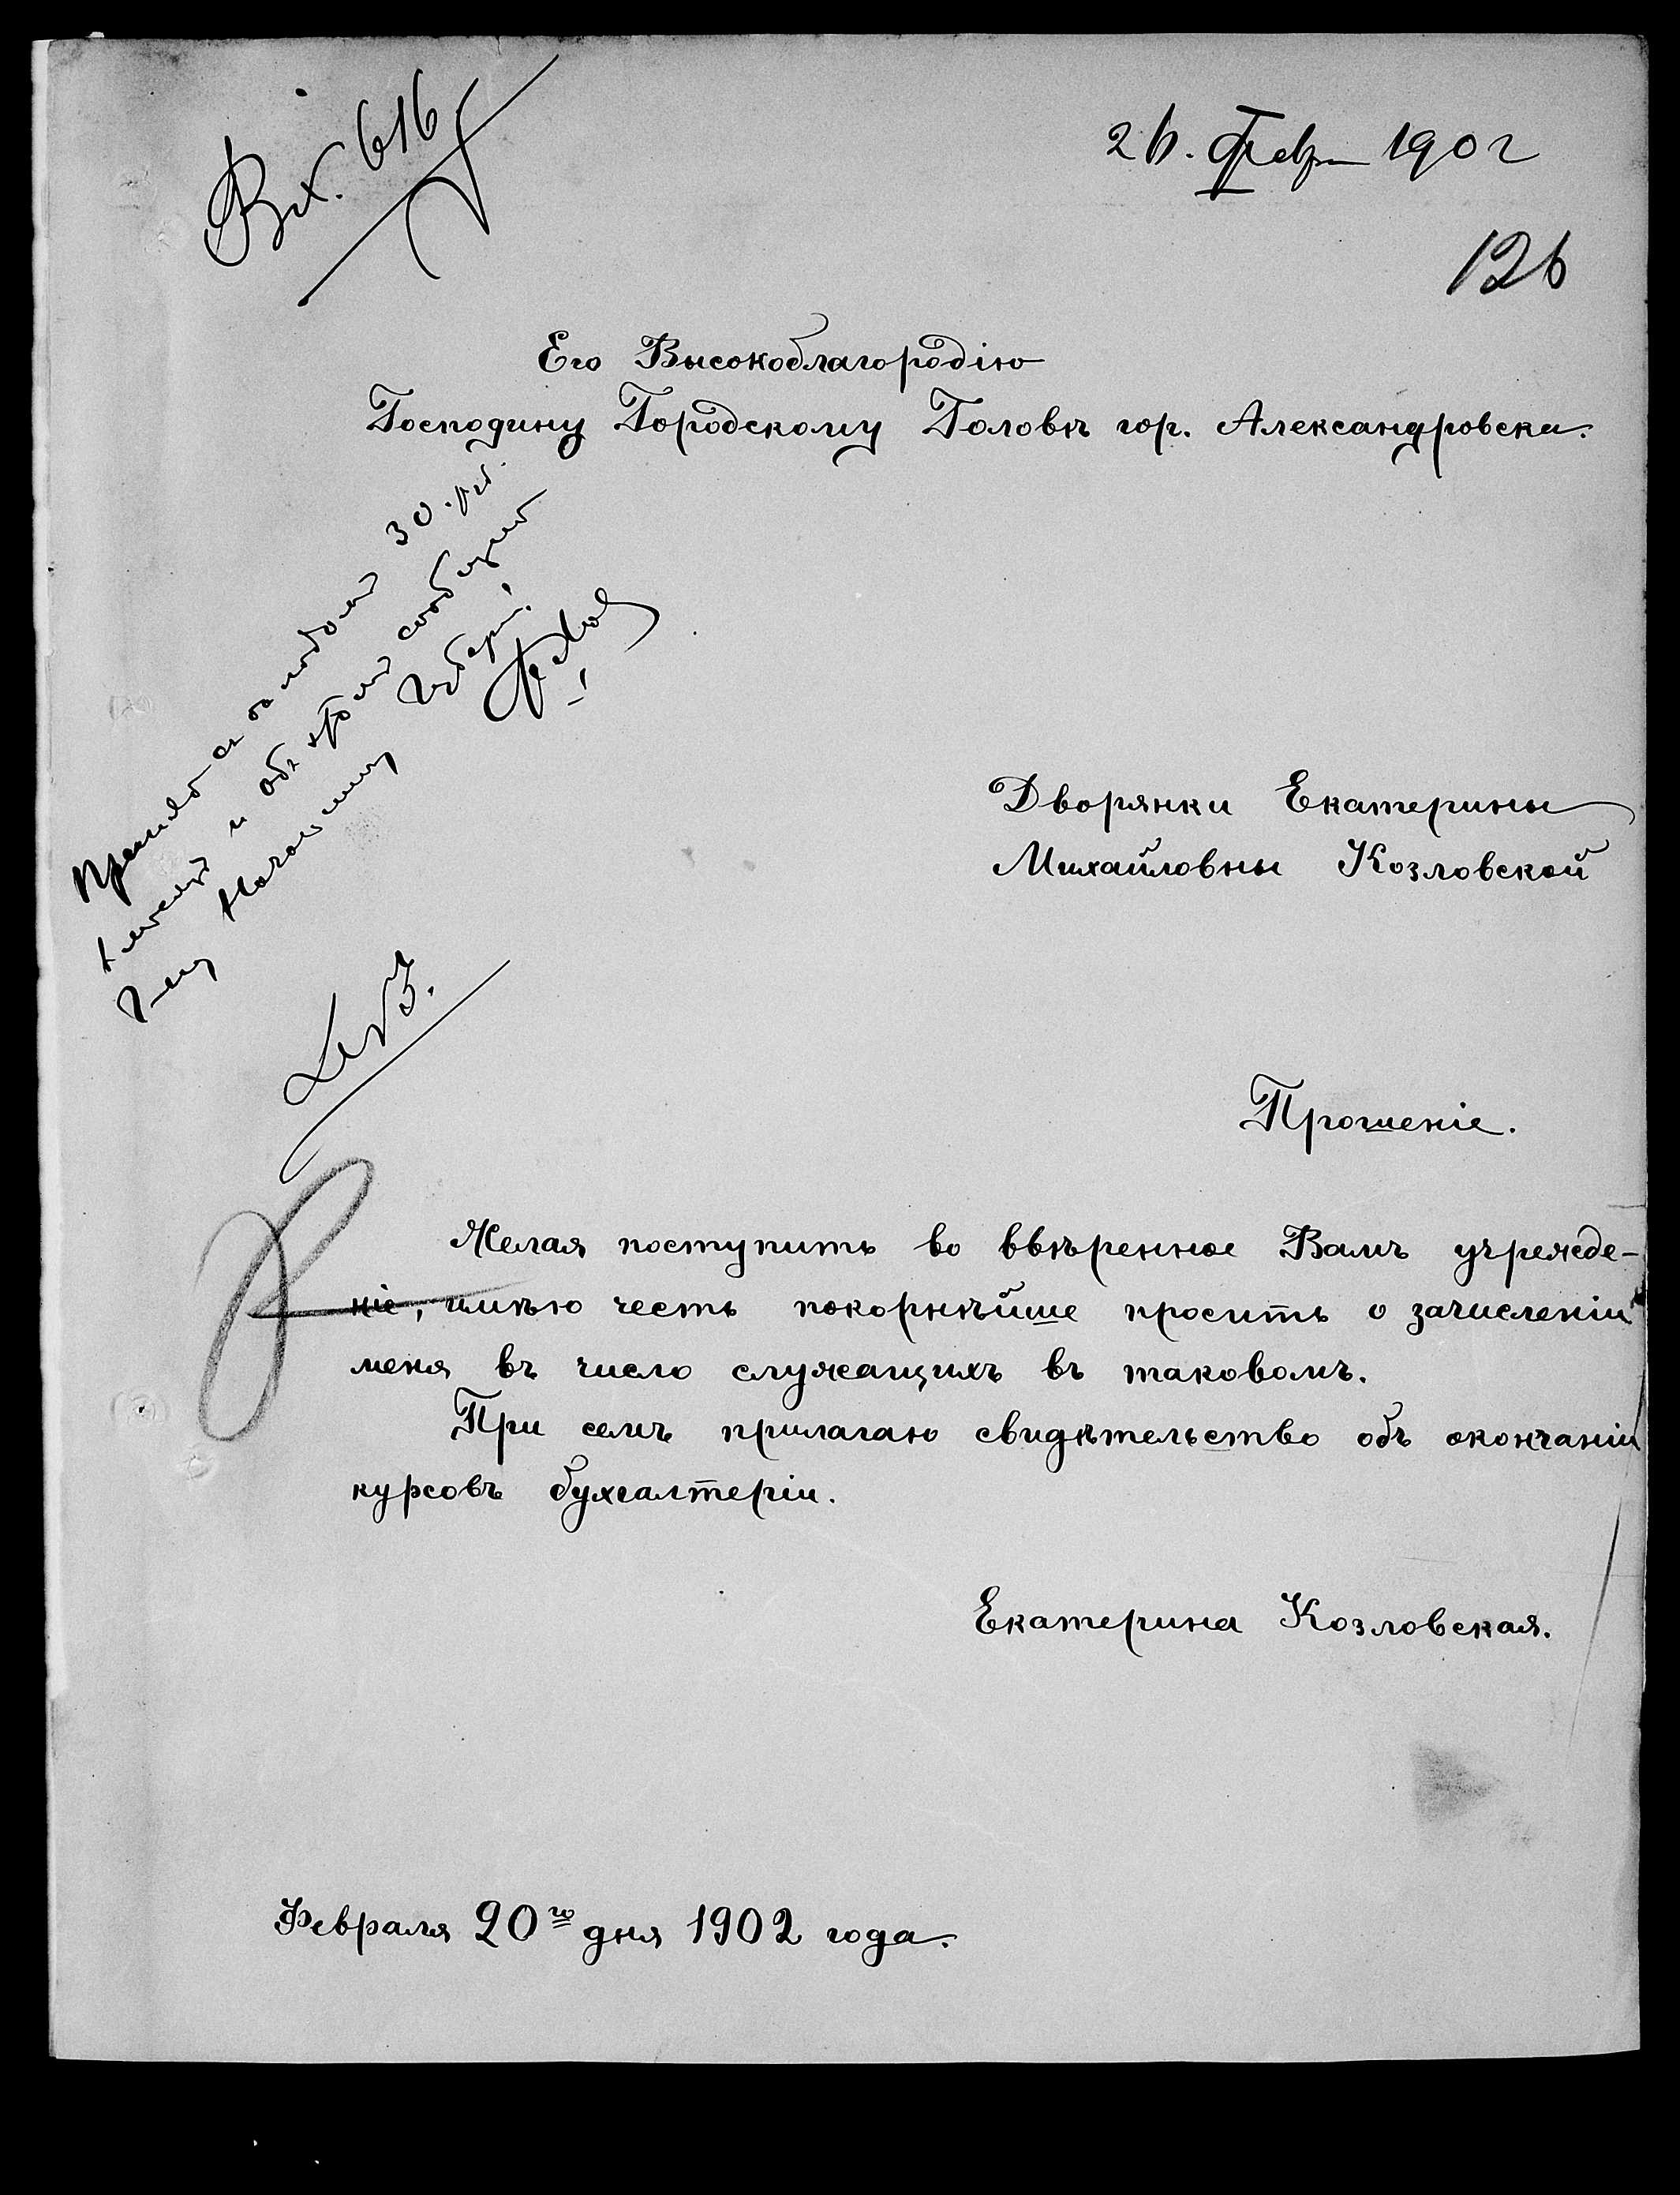 Вх. 616
26. Февр 1902
126
Его Высокоблагородію
Господину Городскому Головѣ гор. Александровска.
30 руб.
и объ этомъ сообщить
Дворянки Екатерины
Михайловны Козловской
Прошеніе.
Желая поступить во ввѣренное Вамъ учрежде-
ніе, имѣю честь покорнѣйше просить о зачисленіи
меня въ число служащихъ въ таковомъ.
При семъ прилагаю свидѣтельство объ окончаніи
курсовъ бухгалтеріи.
Екатерина Козловская.
Февраля 20го дня 1902 года.